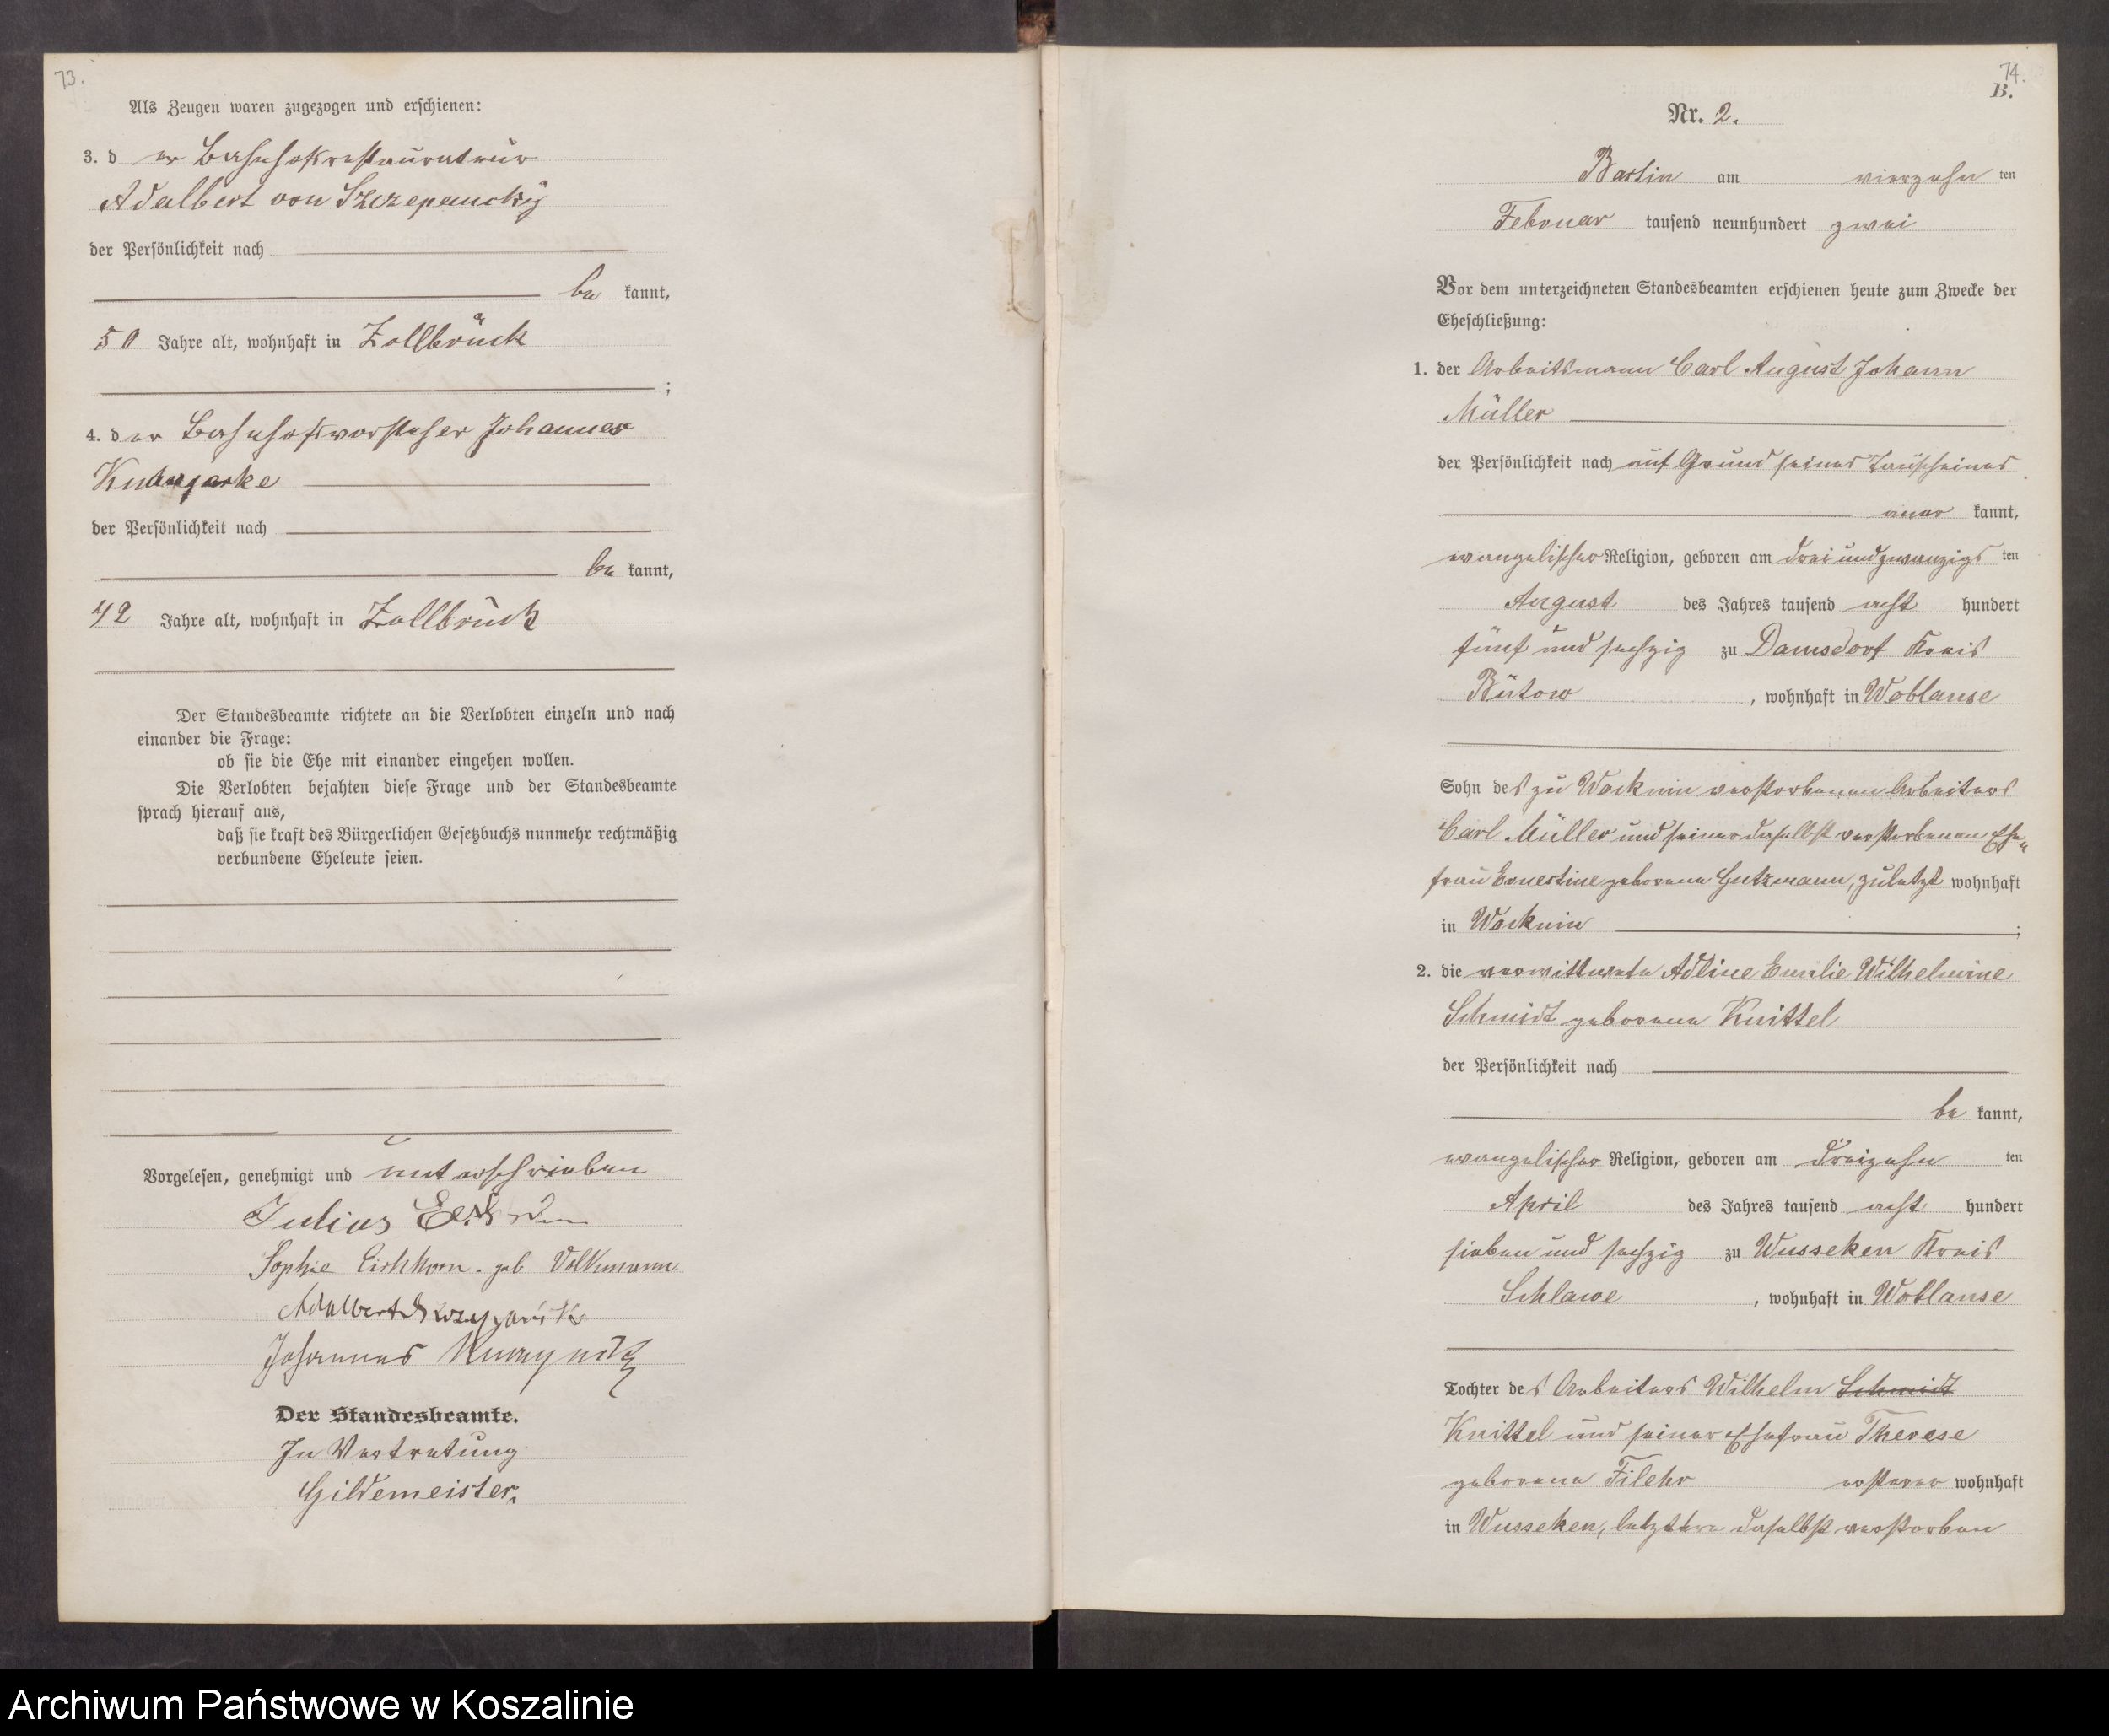 73.
Als Zeugen waren zugezogen und erschienen:
3. der Bahnhofsrestaurateur
Adalbert von
der Persönlichkeit nach
be kannt,
50 Jahre alt, wohnhaft in Zollbrück
;
4. der Bahnhofsvorsteher Johannes
der Persönlichkeit nach
be kannt,
42 Jahre alt, wohnhaft in Zollbrück
Der Standesbeamte richtete an die Verlobten einzeln und nach
einander die Frage:
ob sie die Ehe mit einander eingehen wollen.
Die Verlobten bejahten diese Frage und der Standesbeamte
sprach hierauf aus,
daß sie kraft des Bürgerlichen Gesetzbuchs nunmehr rechtmäßig
verbundene Eheleute seien.
Vorgelesen, genehmigt und unterschrieben
Julius
Sophie Eichhorn. geb Volkmann
Adalbert
Johannes
Der Standesbeamte.
In Vertretung
Gildemeister.
74.
B.
Nr. 2.
Bartin am vierzehn ten
Februar tausend neunhundert zwei
Vor dem unterzeichneten Standesbeamten erschienen heute zum Zwecke der
Eheschließung:
1. der Arbeitsmann Carl August Johann
Müller
der Persönlichkeit nach auf Grund seines Taufscheines
aner kannt,
evangelischer Religion, geboren am dreiundzwanzigs ten
August des Jahres tausend acht hundert
fünf und sechzig zu Damsdorf Kreis
Bütow , wohnhaft in Woblanse
Sohn des zu Wocknin verstorbenen Arbeiters
Carl Müller und seiner daselbst verstorbenen Ehe„
frau Ernestine geborene Gutzmann, zuletzt wohnhaft
in Wocknin ;
2. die verwittwete Adline Emilie Wilhelmine
Schmidt geborene Knittel
der Persönlichkeit nach
be kannt,
evangelischer Religion, geboren am dreizehn ten
April des Jahres tausend acht hundert
sieben und sechzig zu Wusseken Kreis
Schlawe , wohnhaft in Woblanse
Tochter des Arbeiters Wilhelm Schmidt
Knittel und seiner Ehefrau Therese
geborene Filehr ersterer wohnhaft
in Wusseken, letztere daselbst verstorben
Archiwum Państwowe w Koszalinie